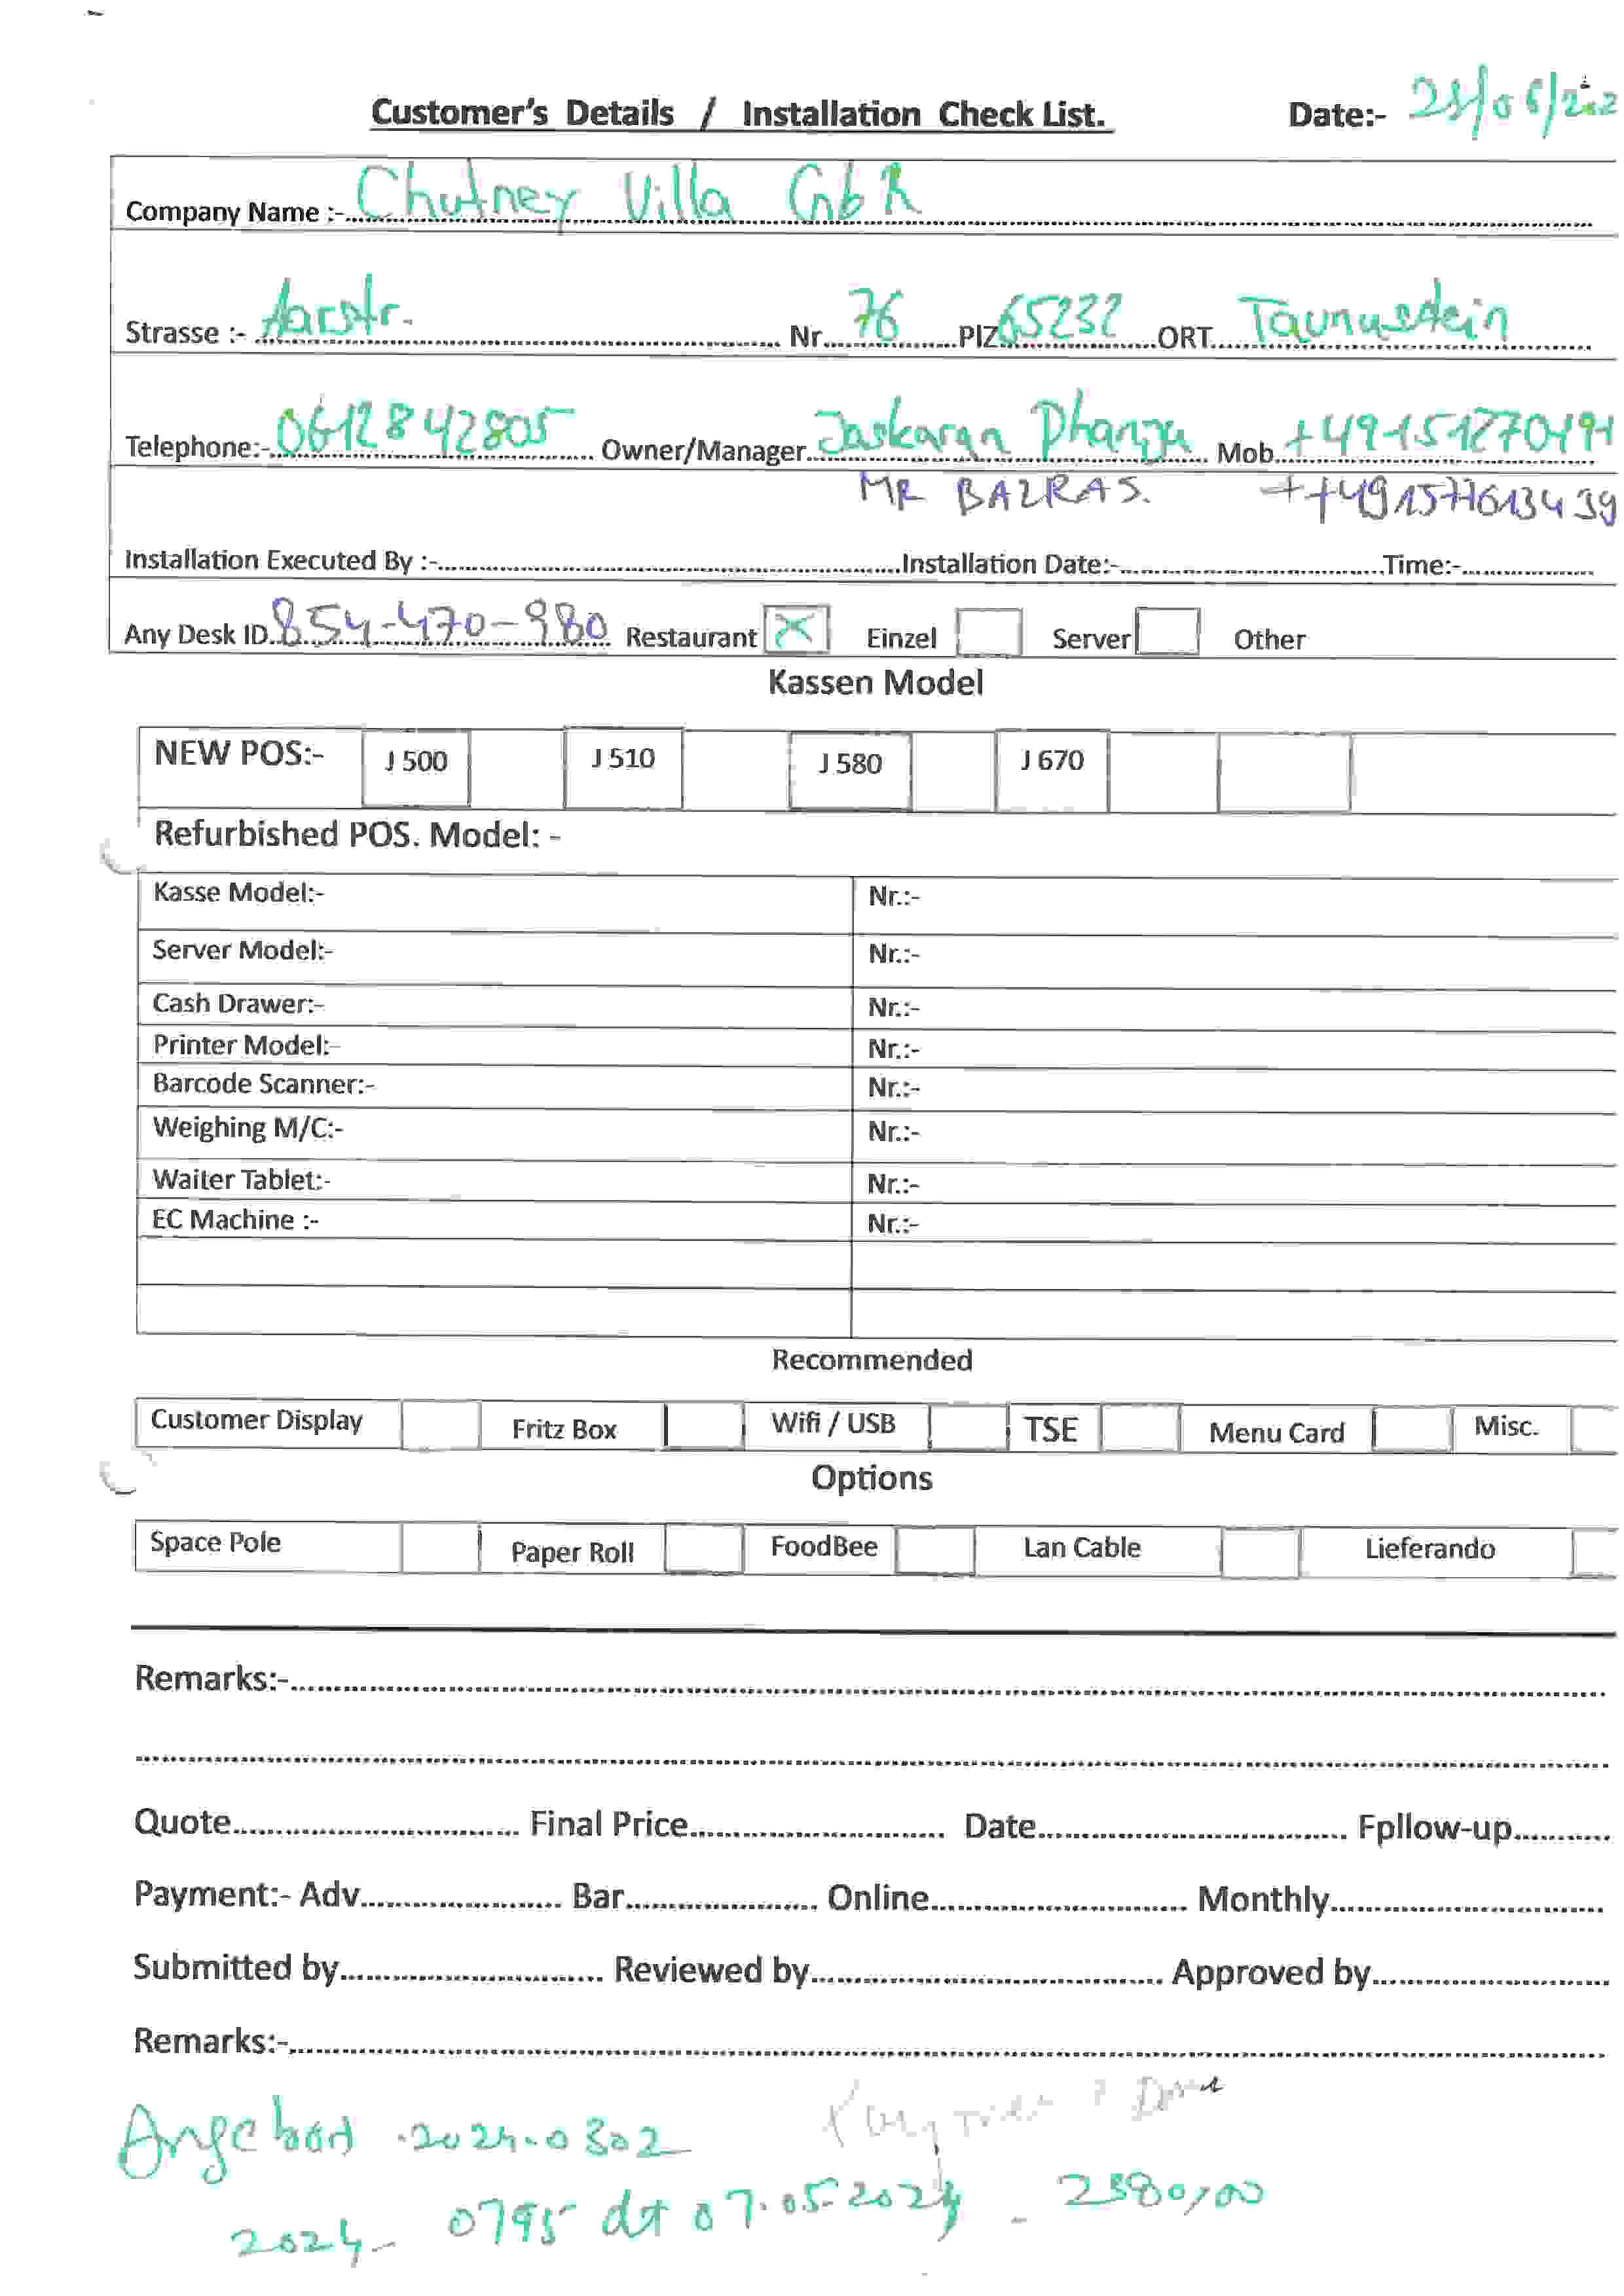 Customer's Details / Installation Check List. Date:-
Company Name :- Chutney Villa GbR
Strasse :- Aarstr. Nr. 76 PlZ 65232 ORT Taunusstein
Telephone:- 0612842805 Owner/Manager Jaskaran Dhanju Mob. +49151270191
MR BAZRAS. ++4915776134 39
Installation Executed By :- Installation Date:- Time:-
Any Desk ID 854-470-980 Restaurant X Einzel Server Other
Kassen Model
NEW POS:- J 500 J 510 J 580 J 670
Refurbished POS. Model: -
Kasse Model:- Nr.:-
Server Model:- Nr.:-
Cash Drawer:- Nr.:-
Printer Model:- Nr.:-
Barcode Scanner:- Nr.:-
Weighing M/C:- Nr.:-
Waiter Tablet:- Nr.:-
EC Machine :- Nr.:-
Recommended
Customer Display Fritz Box Wifi / USB TSE Menu Card Misc.
Options
Space Pole Paper Roll FoodBee Lan Cable Lieferando
Remarks:-
Quote Final Price Date Fpllow-up
Payment:- Adv. Bar Online Monthly
Submitted by Reviewed by Approved by
Remarks:-
Angebot .2024-0302
2024- 0795 dt 07.05.2024 - 2380,00